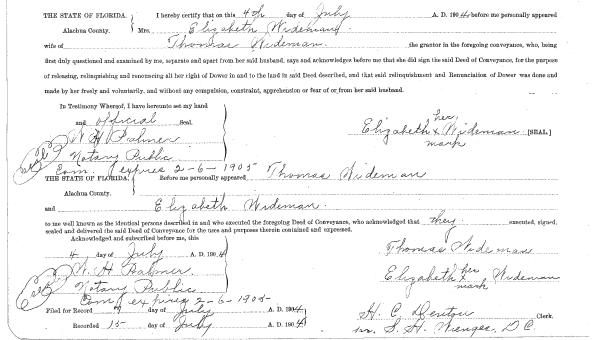 THE STATE OF FLORIDA. I hereby certify that on this 4th day of July A. D. 1904 before me personally appeared
Alachua County. Mrs. Elizabeth Wideman
wife of Thomas Wideman. the grantor in the foregoing conveyance, who, being
first duly questioned and examined by me, separate and apart from her said husband, says and acknowledges before me that she did sign the said Deed of Conveyance, for the purpose
of releasing, relinquishing and renouncing all her right of Dower in and to the land in said Deed described, and that said relinquishment and Renunciation of Dower was done and
made by her freely and voluntarily, and without any compulsion, constraint, apprehension or fear of or from her said husband.
In Testimony Whereof, I have hereunto set my hand
and official Seal.
W H Palmer
Notary Public
Com expires 2-6-1905
seal
her
Elizabeth x Wideman [SEAL]
mark
THE STATE OF FLORIDA. Before me personally appeared Thomas Wideman
Alachua County.
and Elizabeth Wideman.
to me well known as the identical persons described in and who executed the foregoing Deed of Conveyance, who acknowledged that they executed, signed,
sealed and delivered the said Deed of Conveyance for the uses and purposes therein contained and expressed.
Acknowledged and subscribed before me, this
4 day of July A. D. 1904
W. H Palmer
Notary Public
Com expires 2-6-1905
seal
Thomas Wideman
her
Elizabeth x Wideman
mark
Filed for Record day of July A. D. 1904
Recorded 15 day of July A. D. 1904
H. C. Denton Clerk,
S. H. Wienges, D. C.